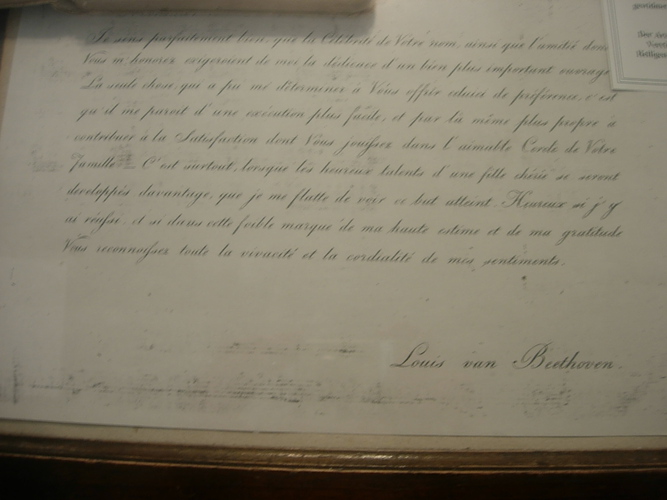 Je sens parfaitement bien, que la Célébrité de Vôtre nom, ainsi que l'amitié dont
Vous m'honorez, exigeroient de moi la dédicace d'un bien plus important ouvrage.
La seule chose, qui a pu me déterminer à Vous offrir celui-ci de préférence, c'est
qu'il me paroit d'une exécution plus facile, et par là même plus propre à
contribuer à la Satisfaction dont Vous jouissez dans l'aimable Cercle de Votre
Famille. C'est surtout, lorsque les heureux talents d'une fille chérie se seront
developpés davantage, que je me flatte de voir ce but atteint. Heureux si j'y
ai réussi, et si dans cette foible marque de ma haute estime et de ma gratitude
Vous reconnoissez toute la vivacité et la cordialité de mes sentiments.
Louis van Beethoven.
See